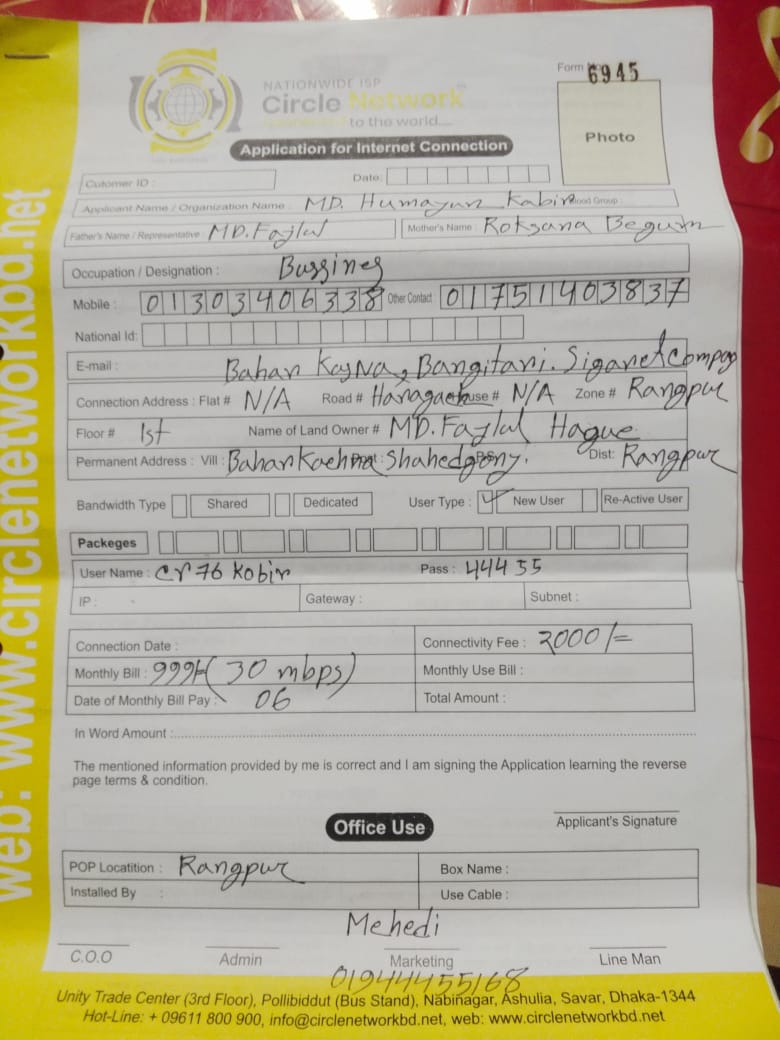 Form No
6945
NATIONWIDE ISP
Circle Network
to the world....
Photo
Application for Internet Connection
Cutomer ID :
Date:
Applicant Name / Organization Name : MD. Humayun Kabir Blood Group :
Father's Name / Representative : MD. Fajlul Mother's Name : Roksana Begum
Occupation / Designation : Bussines
Mobile : 01303406338 Other Contact : 01751403837
National Id:
E-mail : Bahar Kajna, Bangitari. Sigaret Compay
Connection Address : Flat # N/A Road # House # N/A Zone # Rangpur
Floor # 1st Name of Land Owner # MD. Fajlul Haque
Permanent Address : Vill : Bahar Kachna Shahedgonj. Dist: Rangpur
Bandwidth Type Shared Dedicated User Type : New User Re-Active User
Packeges
User Name : cr76 kobir Pass : 44455
IP : Gateway : Subnet :
Connection Date : Connectivity Fee : 2000/=
Monthly Bill : 999/= (30 mbps) Monthly Use Bill :
Date of Monthly Bill Pay : 06 Total Amount :
In Word Amount :
The mentioned information provided by me is correct and I am signing the Application learning the reverse
page terms & condition.
Applicant's Signature
Office Use
POP Locatition : Rangpur Box Name :
Installed By : Use Cable :
Mehedi
C.O.O Admin Marketing Line Man
01944455168
Unity Trade Center (3rd Floor), Pollibiddut (Bus Stand), Nabinagar, Ashulia, Savar, Dhaka-1344
Hot-Line: + 09611 800 900, info@circlenetworkbd.net, web: www.circlenetworkbd.net
web: www.circlenetworkbd.net